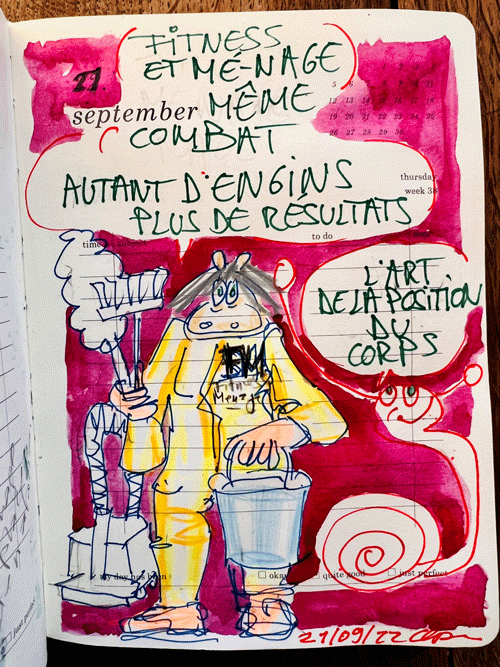 FITNESS
ET MÉ-NAGE
MÊME
COMBAT
AUTANT D'ENGINS
PLUS DE RÉSULTATS
21.
september
9 10 11
12 13 14 15 16 17 18
19 20 21 22 23 24 25
26 27 28 29 30
thursday
week 38
to do
L'ART
DE LA POSITION
DU
CORPS
FM
Menage
my day has been
okay
quite good
just perfect
21/09/22